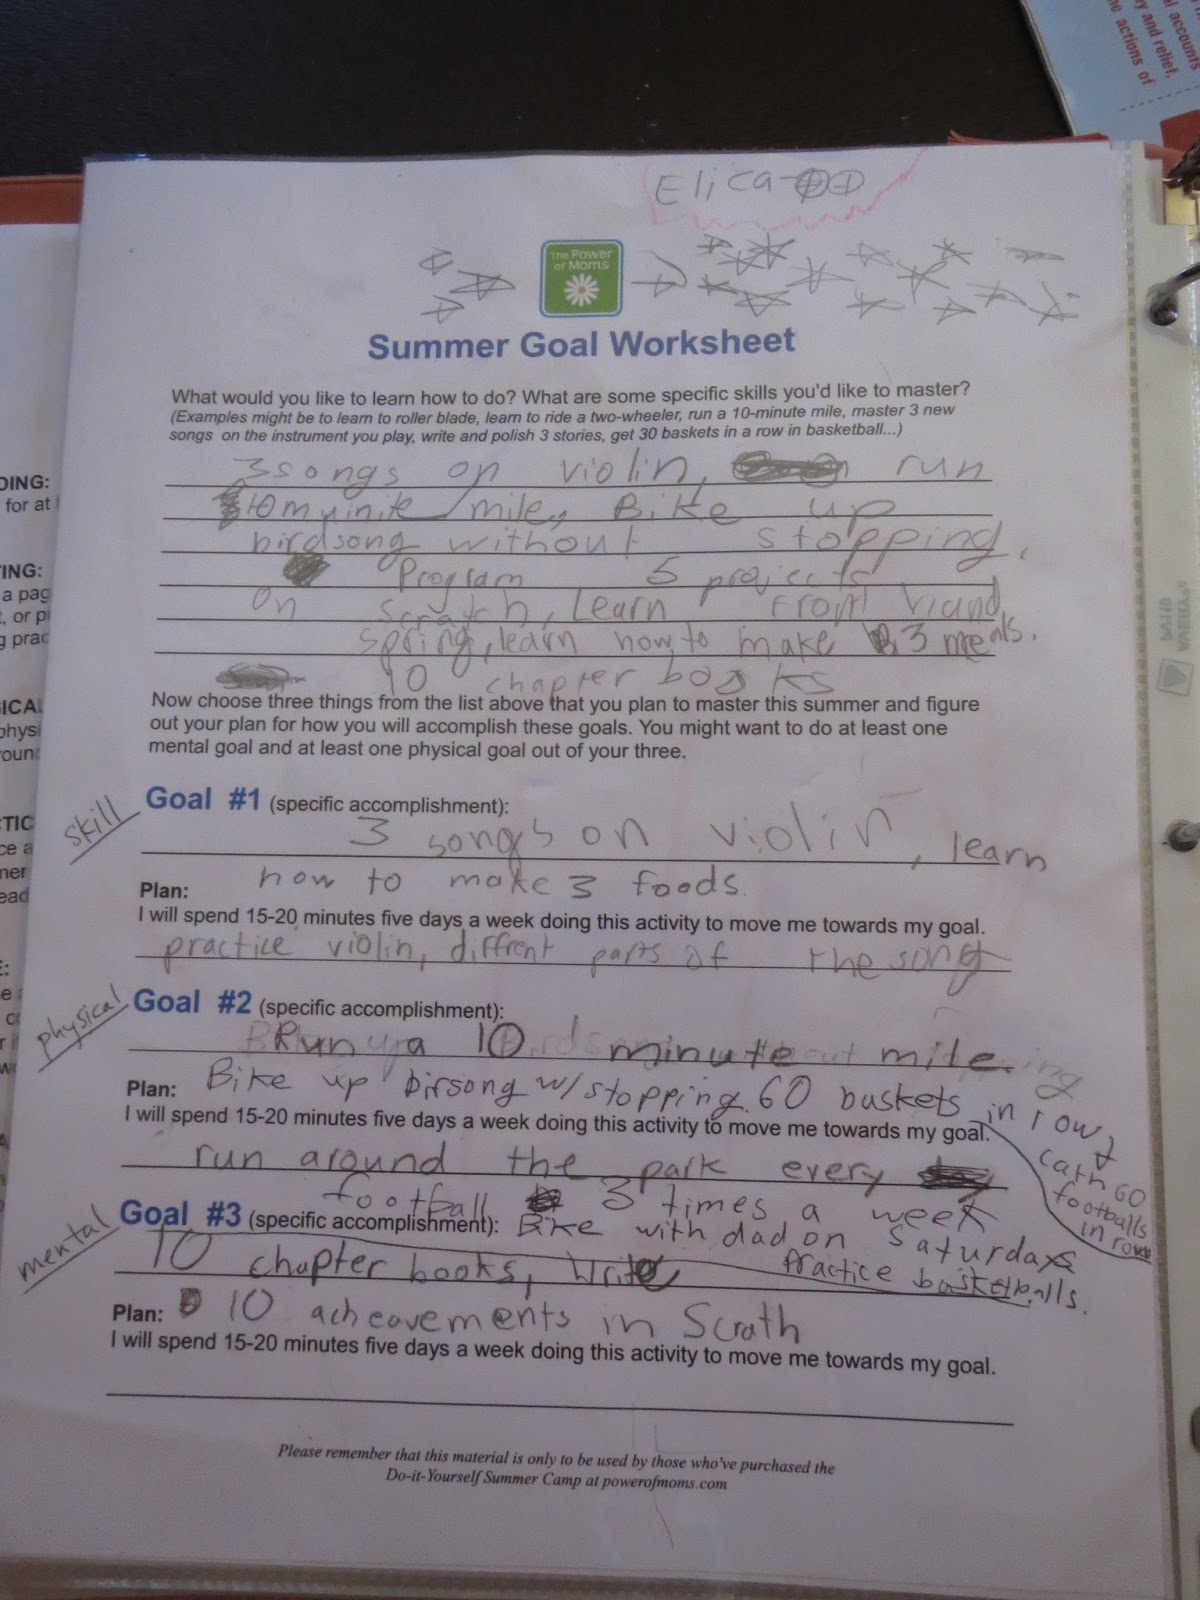 al accounts
by and relief.
he actions of
Elica
The Power
of Moms
Summer Goal Worksheet
What would you like to learn how to do? What are some specific skills you'd like to master?
(Examples might be to learn to roller blade, learn to ride a two-wheeler, run a 10-minute mile, master 3 new
songs on the instrument you play, write and polish 3 stories, get 30 baskets in a row in basketball...)
3 songs on violin, run
10 mile, Bike up
birdsong without stopping,
Program 5 projects
on scratch, Learn from
spring, learn how to make 3 meals.
10 chapter books
Now choose three things from the list above that you plan to master this summer and figure
out your plan for how you will accomplish these goals. You might want to do at least one
mental goal and at least one physical goal out of your three.
skill
Goal #1 (specific accomplishment):
3 songs on violin, learn
how to make 3 foods.
Plan:
I will spend 15-20 minutes five days a week doing this activity to move me towards my goal.
practice violin, diffrent parts of the song
physical
Goal #2 (specific accomplishment):
Run a 10 minute mile.
Plan: Bike up birsong w/stopping. 60 baskets in row,
cath 60
footballs
in row
I will spend 15-20 minutes five days a week doing this activity to move me towards my goal.
run around the park every
football 3 times a week
mental
Goal #3 (specific accomplishment): Bike with dad on Saturdays
practice basketballs.
10 chapter books, Write
Plan: 10 acheavements in Scrath
I will spend 15-20 minutes five days a week doing this activity to move me towards my goal.
Please remember that this material is only to be used by those who've purchased the
Do-it-Yourself Summer Camp at powerofmoms.com